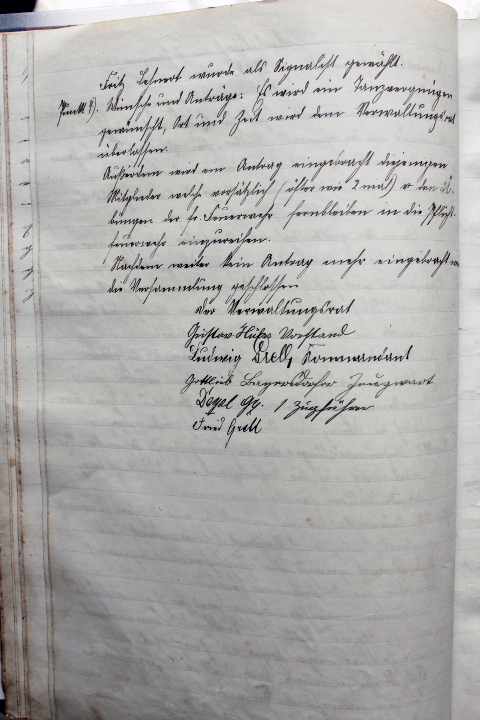 Fritz Lehnert wurde als Signalist gewählt.
Punkt 8). Wünsche und Anträge: Es wird ein Tanzvergnügen
gewünscht, Ort und Zeit wird dem Verwaltungsrat
überlassen.
Außerdem wird ein Antrag eingebracht diejenigen
Mitglieder welche vorsätzlich (öfter wie 2 mal) v. den Ü-
bungen der fr. Feuerwehr fernbleiben in die Pflicht-
feuerwehr einzureihen.
Nachdem weiter kein Antrag mehr eingebracht
die Versammlung geschlossen
der Verwaltungsrat
Gustav Vorstand
Ludwig Kommandant
Gottlieb Bayersdorfer Zeugwart
Gg. 1 Zugführer
Fried Grell